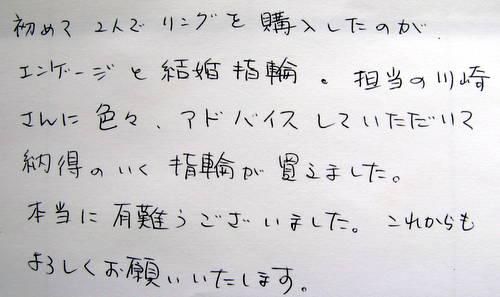 初めて2人でリングを購入したのが
エンゲージと結婚指輪。担当の川崎
さんに色々、アドバイスしていただいて
納得のいく指輪が買えました。
本当に有難うございました。これからも
よろしくお願いいたします。